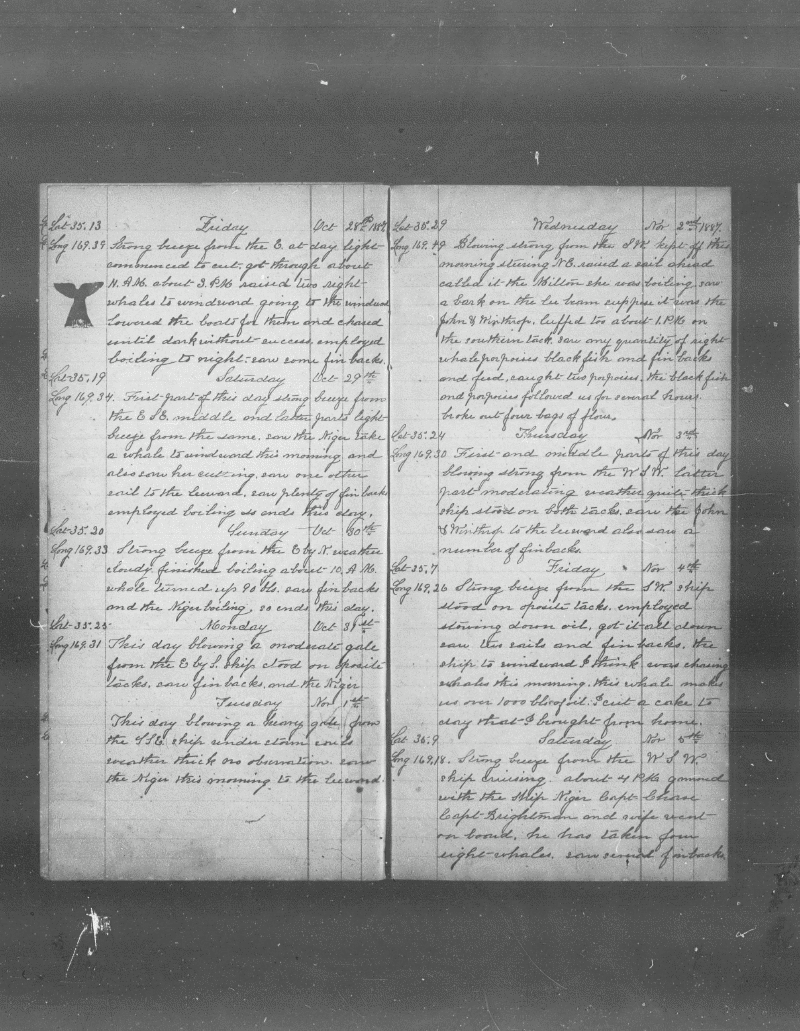 Lat 35.13 Friday Oct 28th 1887
Long 169.39 Strong breeze from the E. at day light
commenced to cut. got through about
11. A.M. about 3. P.M raised two right
whales to windward going to the windward
Lowered the boats for them and chased
until dark without success. employed
boiling to night. saw some finbacks.
Lat 35.19 Saturday Oct 29th
Long 169.34. First part of this day strong breeze from
the E S E. middle and latter parts light
breeze from the same. saw the Niger take
a whale to windward this morning. and
also saw her cutting. saw one other
sail to the leeward. saw plenty of finbacks
employed boiling so ends this day.
Lat 35.20 Sunday Oct 30th
Long 169.33 Strong breeze from the E by N weather
cloudy. finished boiling about 10. A M.
whale turned up 90 bls. saw finbacks
and the Niger boiling, so ends this day.
Lat 35.25 Monday Oct 31st
Long 169.31 This day blowing a moderate gale
from the E by S. ship stood on oposite
tacks. saw finbacks. and the Niger
Tuesday Nov 1st
This day blowing a heavy gale from
the S.S.E. ship under storm sails
weather thick no obsrvation. saw
the Niger this morning to the leeward.
Lat 35.29 Wednesday Nov 2nd 1887.
Long 169.49 Blowing strong from the S.W. kept off this
morning stering N.E. raised a sail ahead
called it the Milton she was boiling. saw
a bark on the lee beam suppose it was the
John & Winthrop. luffed too about 1. P.M on
the southern tack. saw any quantity of right
whale porpoises blackfish and finbacks
and feed, caught two porpoises. the blackfish
and porpoises followed us for several hours.
broke out four bags of flour.
Lat 35.24 Thursday Nov 3rd
Long 169.30 First and middle parts of this day
blowing strong from the W S.W. latter
part moderating weather quite thick
ship stood on both tacks. saw the John
& Winthrop to the leeward also saw a
number of finbacks.
Lat 35.7 Friday Nov 4th
Long 169.26 Strong breeze from the S.W. ship
stood on oposite tacks. employed
stowing down oil, got it all down
saw two sails and finbacks. the
ship to windward I think was chasing
whales this morning. this whale makes
us over 1000 bbls of oil. I cut a cake to
day that I brought from home.
Lat 35.9 Saturday Nov 5th
Long 169.18. Strong breeze from the W S W.
ship cruising. about 4 P.M. gammed
with the Ship Niger Capt Chase
Capt Brightman and wife went
on board. he has taken four
right whales. saw several finbacks.